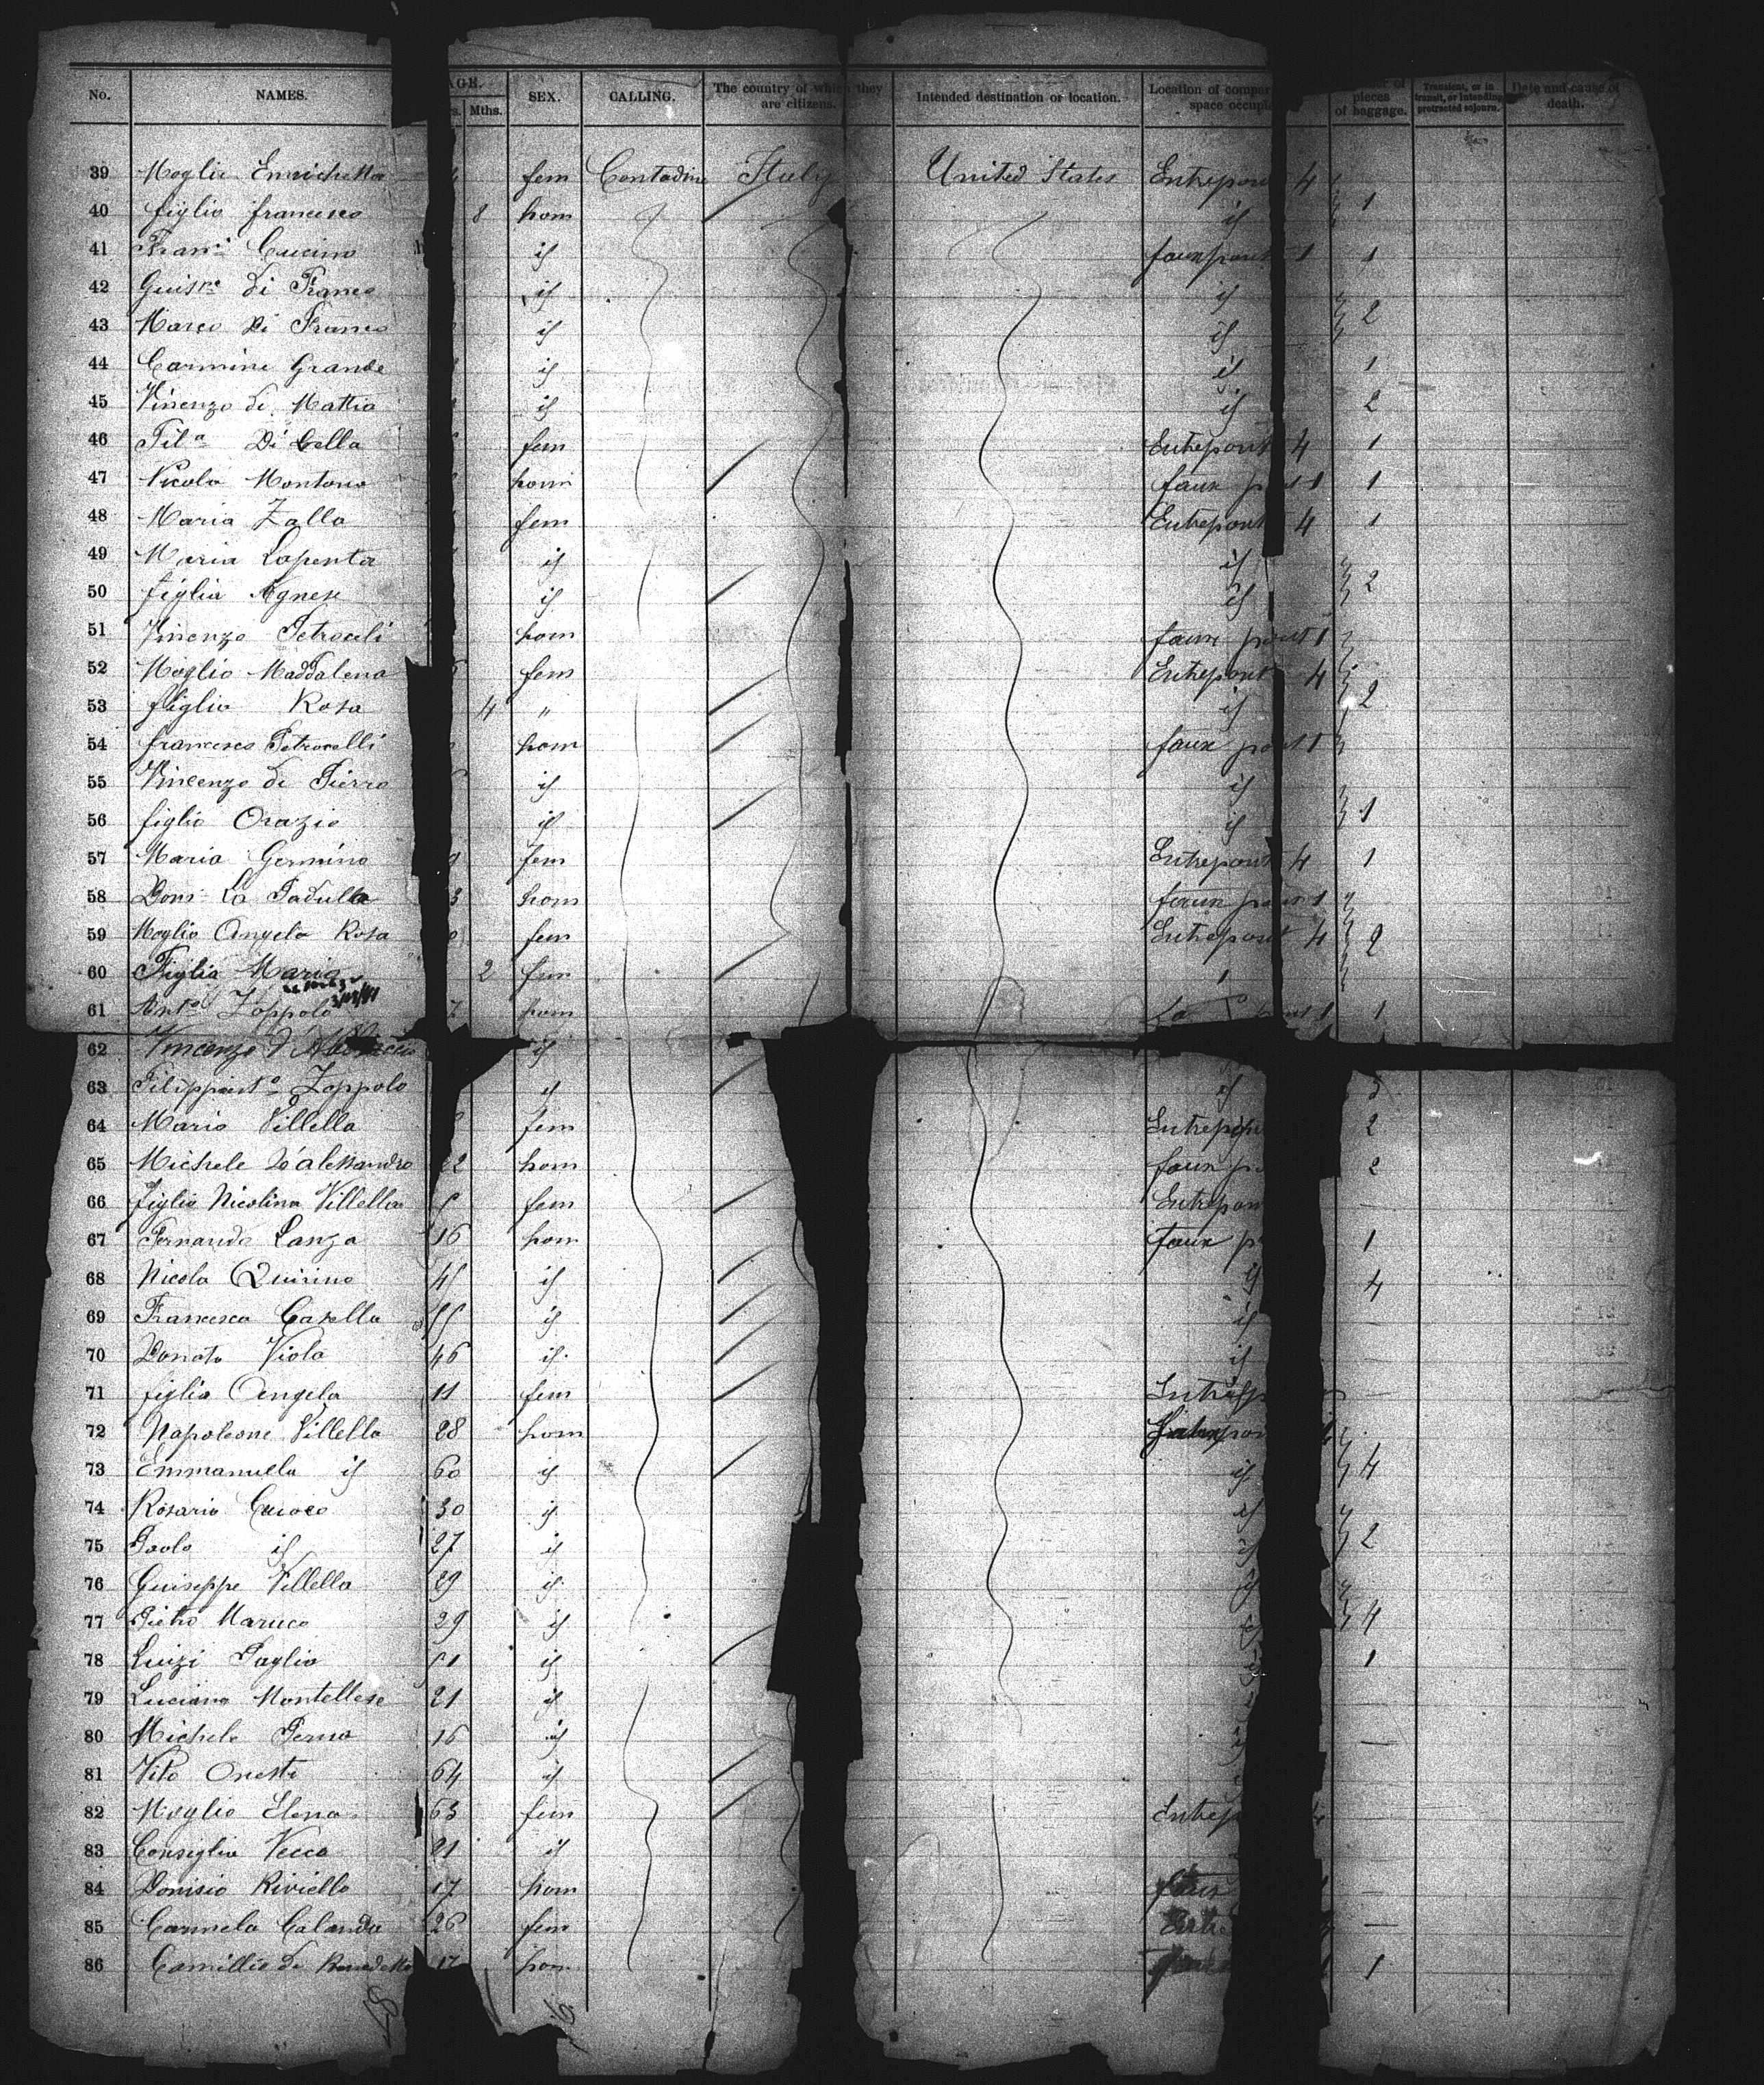 No. NAMES. AGE. Mths. SEX. CALLING. The country of which they are citizens. Intended destination or location. Location of compar space occupi pieces of baggage. Transient, or in transit, or intending protracted sojourn. Date and cause of death.
39 Moglie Enrichetta fem Contadine Italy United States Entrepont 4
40 figlio francesco 8 hom id 1
41 Fran. Cucino id fauxpont 1 1
42 Guis.pe di Franco id id
43 Marco Di Franco id id 2
44 Carmine Grande id id 1
45 Vincenzo di Mattia id id 2
46 Fil.a Di Cella fem Entrepont 4 1
47 Nicola Montano hom faux pont 1 1
48 Maria Zalla fem Entrepont 4 1
49 Maria Lapenta id id
50 figlia Agnese id id 2
51 Vincenzo Petroceli hom faux pont 1
52 Moglie Maddalena fem Entrepont 4
53 figlia Rosa 4 " id 2
54 francesco Petrocelli hom faux pont 1
55 Vincenzo di Pierro id id
56 figlio Orazio id id 1
57 Maria Germino fem Entrepont 4 1
58 Dom. La Padulla 3 hom faux pont 1
59 Moglie Angela Rosa fem Entrepont 4 2
60 Figlia Maria 2 fem
61 Ant.o Zoppolo 7 hom 1
62 Vincenzo id
63 Filippant.o Zoppolo id id 3
64 Maria Villella fem Entrepon 2
65 Michele D'alessandro 22 hom faux po 2
66 figlia Nicolina Villella fem Entrepon —
67 Fernando Lanza 16 hom faux p 1
68 Nicola Quirino 45 id id 4
69 Francesco Casella 55 id id
70 Donato Viola 46 id id
71 figlia Angela 11 fem Entrep —
72 Napoleone Villella 28 hom
73 Emmanuella id 60 id id 4
74 Rosario Cuoco 30 id id
75 Paolo id 27 id id 2
76 Guiseppe Villella 29 id id
77 Pietro Maruco 29 id id 4
78 Luigi Paglia 51 id 1
79 Luciano Montellese 21 id
80 Michele Perno 16 id —
81 Vito Onesti 64 id
82 Moglie Elena 63 fem Entrep
83 Consiglia Vecca 21 id
84 Donisio Riviello 17 hom faux —
85 Carmela Calanda 26 fem Entre —
86 Camillio di Benedetto 17 hom 1